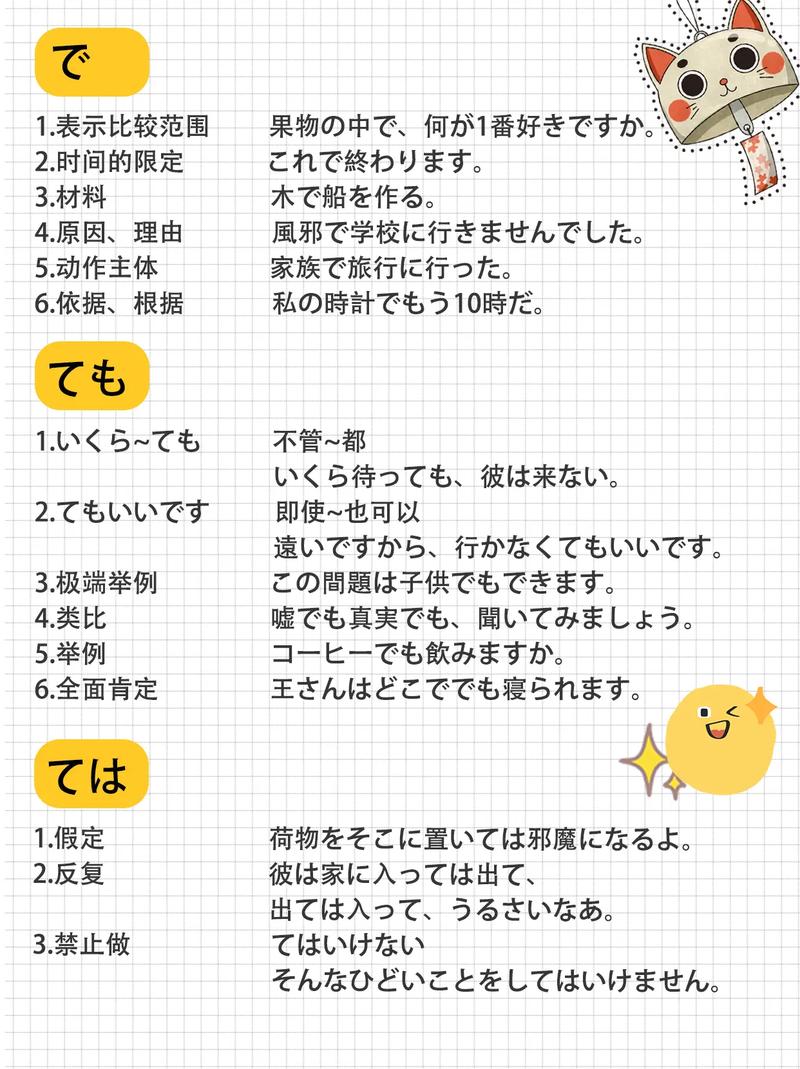 で
1.表示比较范围 果物の中で、何が1番好きですか。
2.时间的限定 これで終わります。
3.材料 木で船を作る。
4.原因、理由 風邪で学校に行きませんでした。
5.动作主体 家族で旅行に行った。
6.依据、根据 私の時計でもう10時だ。
ても
1.いくら~ても 不管~都
いくら待っても、彼は来ない。
2.てもいいです 即使~也可以
遠いですから、行かなくてもいいです。
3.极端举例 この間題は子供でもできます。
4.类比 嘘でも真実でも、聞いてみましょう。
5.举例 コーヒーでも飲みますか。
6.全面肯定 王さんはどこででも寝られます。
ては
1.假定 荷物をそこに置いては邪魔になるよ。
2.反复 彼は家に入っては出て、
出ては入って、うるさいなあ。
3.禁止做 てはいけない
そんなひどいことをしてはいけません。